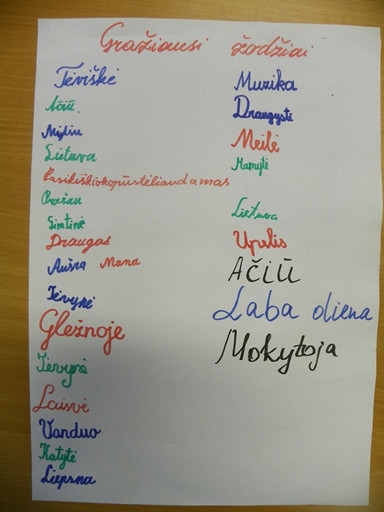 Gražiausi žodžiai
Tėviškė
Ačiū.
Myliu
Lietuva
Pasikiškiakopūstėliaudamas
Prašau
Gimtinė
Draugas
Aušra Mama
Tėvynė
Gležnoje
Tėvynė
Laisvė
Vanduo
Katytė
Liepsna
Muzika
Draugystė
Meilė
Mamytė
Lietuva
Upelis
AČIŪ
Laba diena
Mokytoja